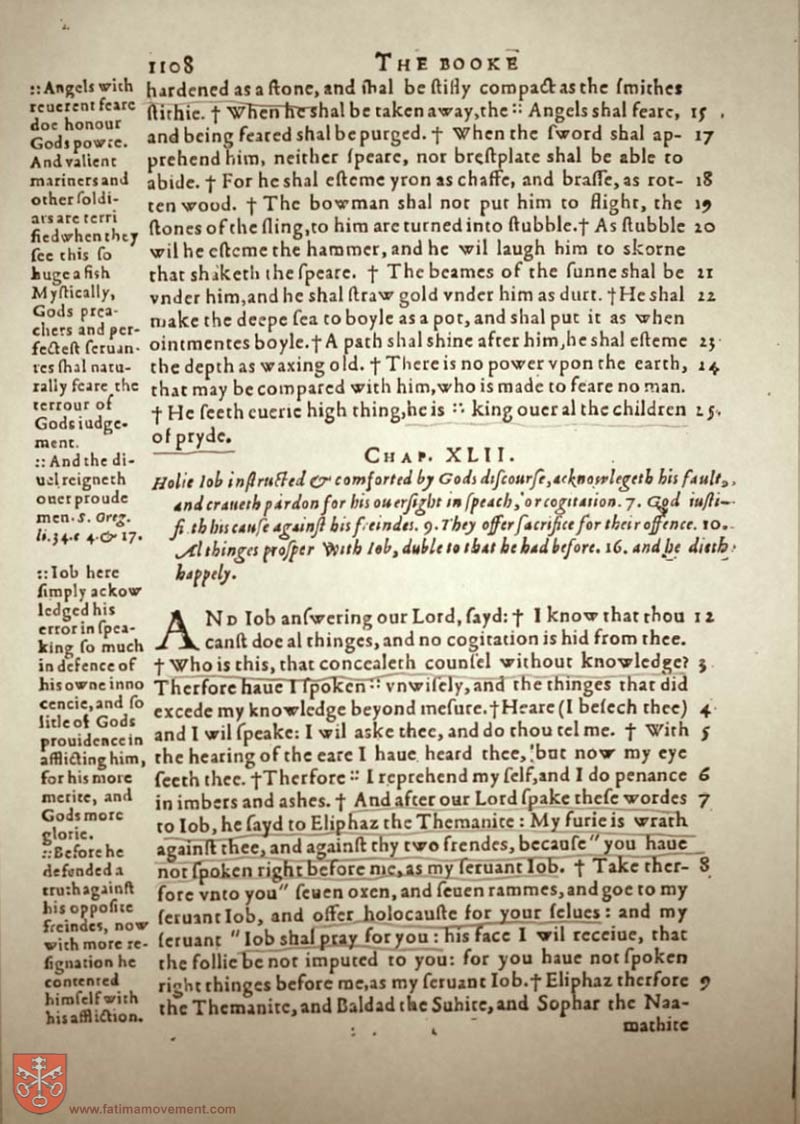 1108 THE BOOKE
hardened as a ſtone, and ſhal be ſtiſly compact as the ſmithes
ſtithie. † When he shal be taken away, the :: Angels shal feare, 15
and being feared shal be purged. † When the ſword shal ap- 17
prehend him, neither ſpeare, nor breſtplate shal be able to
abide. † For he shal eſteme yron as chaffe, and braſſe, as rot- 18
ten wood. † The bowman shal not put him to flight, the 19
ſtones of the ſling, to him are turned into ſtubble. † As ſtubble 20
wil he eſteme the hammer, and he wil laugh him to skorne
that shaketh the ſpeare. † The beames of the ſunne shal be 21
vnder him, and he shal ſtraw gold vnder him as durt. † He shal 22
make the deepe ſea to boyle as a pot, and shal put it as when
ointmentes boyle. † A path shal shine after him, he shal eſteme 23
the depth as waxing old. † There is no power vpon the earth, 14
that may be compared with him, who is made to feare no man.
† He ſeeth euerie high thing, he is :: king ouer al the children 25.
of pryde.
:: Angels with
reuerent feare
doe honour
Gods powre.
And valient
mariners and
other ſoldi-
ars are terri
fied when they
ſee this ſo
huge a fish
Myſtically,
Gods prea-
chers and per-
fecteſt ſeruan-
tes ſhal natu-
rally feare the
terrour of
Gods iudge-
ment.
:: And the di-
uel reigneth
ouer proude
men. S. Greg.
li. 34. c 4. & 17.
CHAP. XLII.
Holie Iob inſtructed & comforted by Gods diſcourſe, acknowlegeth his fault,
and craueth pardon for his ouerſight in ſpeach, or cogitation. 7. God iuſti-
fi th his cauſe againſt his freindes. 9. They offer ſacrifice for their offence. 10.
Al thinges proſper With Iob, duble to that he had before. 16. and he dieth
happely.
AND Iob anſwering our Lord, ſayd: † I know that thou 12
canſt doe al thinges, and no cogitation is hid from thee.
† Who is this, that concealeth counſel without knowledge? 3
Therfore haue I ſpoken :: vnwiſely, and the thinges that did
excede my knowledge beyond meſure. † Heare (I beſech thee) 4
and I wil ſpeake: I wil aske thee, and do thou tel me. † With 5
the hearing of the eare I haue heard thee, but now my eye
ſeeth thee. † Therfore :: I reprehend my ſelf, and I do penance 6
in imbers and ashes. † And after our Lord ſpake theſe wordes 7
to Iob, he ſayd to Eliphaz the Themanite: My furie is wrath
againſt thee, and againſt thy two frendes, becauſe " you haue
not ſpoken right before me, as my ſeruant Iob. † Take ther- 8
fore vnto you " ſeuen oxen, and ſeuen rammes, and goe to my
ſeruant Iob, and offer holocauſte for your ſelues: and my
ſeruant " Iob shal pray for you: his face I wil receiue, that
the follie be not imputed to you: for you haue not ſpoken
right thinges before me, as my ſeruant Iob. † Eliphaz therfore 9
the Themanite, and Baldad the Suhite, and Sophar the Naa-
mathite
:: Iob here
ſimply ackow
ledged his
error in ſpea-
king ſo much
in defence of
his owne inno
cencie, and ſo
litle of Gods
prouidence in
afflicting him,
for his more
merite, and
Gods more
glorie.
:: Before he
defended a
truth againſt
his oppoſite
freindes, now
with more re-
ſignation he
contented
himſelf with
his affliction.
www.fatimamovement.com